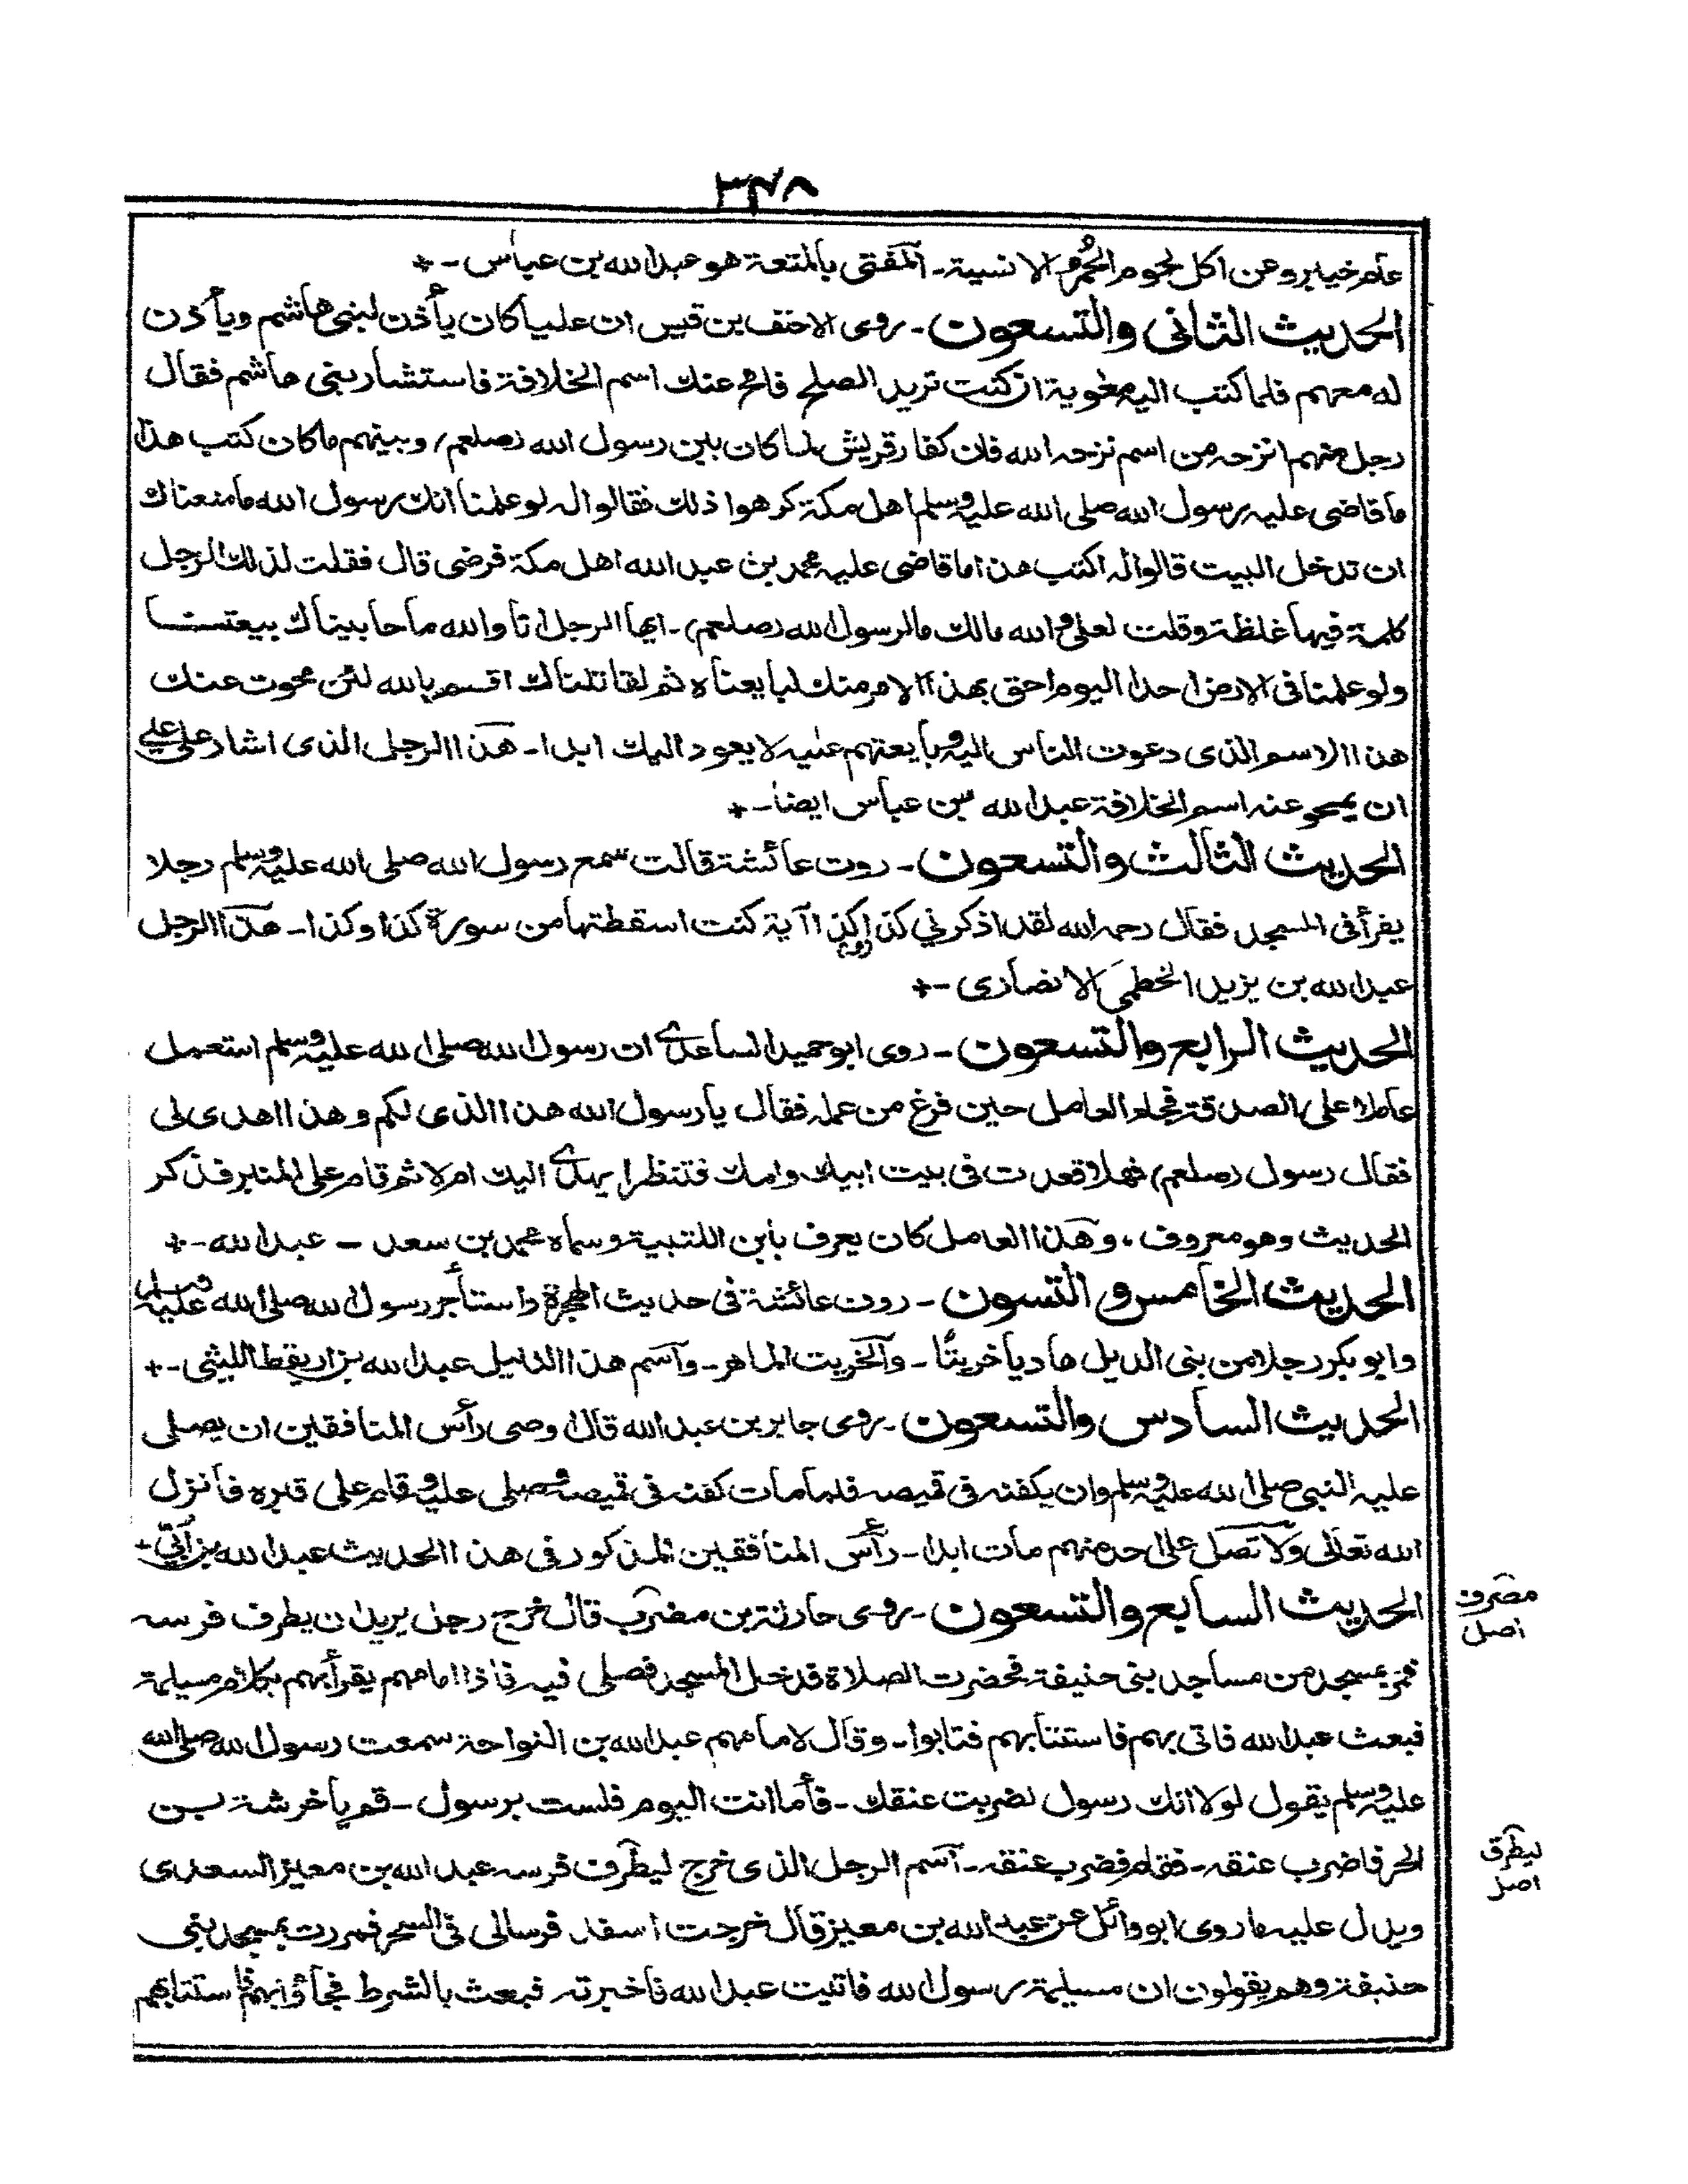 ٣٤٨
عام خيبر وعن اكل لحوم الحُمُر الانسية ـ المفتى بالمتعة هو عبد الله بن عباس ـ+
الحديث الثانى والتسعون ـ روى الاحنف بن قيس ان عليا كان يأذن لبنى هاشم ويأذن
له معهم فلما كتب اليه معٰوية ان كنت تريد الصلح فامح عنك اسم الخلافة فاستشار بنى هاشم فقال
رجل منهم انزحه من اسم نزحه الله فان كفار قريش لما كان بين رسول الله (صلعم) وبينهم ما كان كتب هذا
ما قاضى عليه رسول الله صلى الله عليه وسلم اهل مكة كرهوا ذلك فقالوا له لو علمنا انك رسول الله ما منعناك
ان تدخل البيت قالوا له اكتب هذا ما قاضى عليه محمد بن عبد الله اهل مكة فرضى قال فقلت لذلك الرجل
كلمة فيها غلظة وقلت لعلى والله مالك ما لرسول الله (صلعم) ـ ايها الرجل انا والله ما حابيناك ببيعتنا
ولو علمنا فى الارض احدا اليوم احق بهذا الامر منك لبايعناه ثم لقاتلناك اقسم بالله لئن محوت عنك
هذا الاسم الذى دعوت الناس اليه وبايعتهم عليه لا يعود اليك ابدا ـ هذا الرجل الذى اشار على على
ان يمحو عنه اسم الخلافة عبد الله بن عباس ايضا ـ+
الحديث الثالث والتسعون ـ روت عائشة قالت سمع رسول الله صلى الله عليه وسلم رجلا
يقرأ فى المسجد فقال رحمه الله لقد اذكرني كذا كذا آية كنت اسقطتها من سورة كذا وكذا ـ هذا الرجل
عبد الله بن يزيد الخطمى الانصارى ـ+
الحديث الرابع والتسعون ـ روى ابو حميد الساعدى ان رسول الله صلى الله عليه وسلم استعمل
عاملا على الصدقة فجاء العامل حين فرغ من عمله فقال يا رسول الله هذا الذى لكم وهذا اهدى لى
فقال رسول (صلعم) فهلا قعدت فى بيت ابيك وامك فتنظر ايهدى اليك ام لا ثم قام على المنبر فذكر
الحديث وهو معروف، وهذا العامل كان يعرف بابن اللتبية وسماه محمد بن سعد ـ عبد الله ـ+
الحديث الخامس و التسون ـ روت عائشة فى حديث الهجرة واستأجر رسول الله صلى الله عليه وسلم
وابو بكر رجلا من بنى الديل هاديا خريتًا ـ والخريت الماهر ـ واسم هذا الدليل عبد الله بن اريقط الليثى ـ+
الحديث السادس والتسعون ـ روى جابر بن عبد الله قال وصى رأس المنافقين ان يصلى
عليه النبى صلى الله عليه وسلم وان يكفنه فى قميصه فلما مات كفنه فى قميصه وصلى عليه وقام على قبره فأنزل
الله تعالى وَلَا تصل على احد منهم مات ابدا ـ رأس المنافقين المذكور فى هذا الحديث عبد الله بن أبي +
الحديث السابع والتسعون ـ روى حارثة بن مضرب قال خرج رجل يريد ان يطرف فرسه
فمر بمسجد من مساجد بنى حنيفة فحضرت الصلاة فدخل المسجد فصلى فيه فاذا امامهم يقرأ بهم بكلام مسيلمة
فبعث عبد الله فاتى بهم فاستتابهم فتابوا ـ وقال لامامهم عبد الله بن النواحة سمعت رسول الله صلى الله
عليه وسلم يقول لولا انك رسول لضربت عنقك ـ فأما انت اليوم فلست برسول ـ قم يا خرشة بن
الحر فاضرب عنقه ـ فقام فضرب عنقه ـ اسم الرجل الذى خرج ليطرف فرسه عبد الله بن معيز السعدى
ويدل عليه ما روى ابو وائل عن عبد الله بن معيز قال خرجت اسفد فرسا لى فى السحر فمررت بمسجد بنى
حنيفة وهم يقولون ان مسيلمة رسول الله فاتيت عبد الله فاخبرته فبعث بالشرط فجاؤا بهم فاستتابهم
مضرف
اصل
ليطرق
اصل